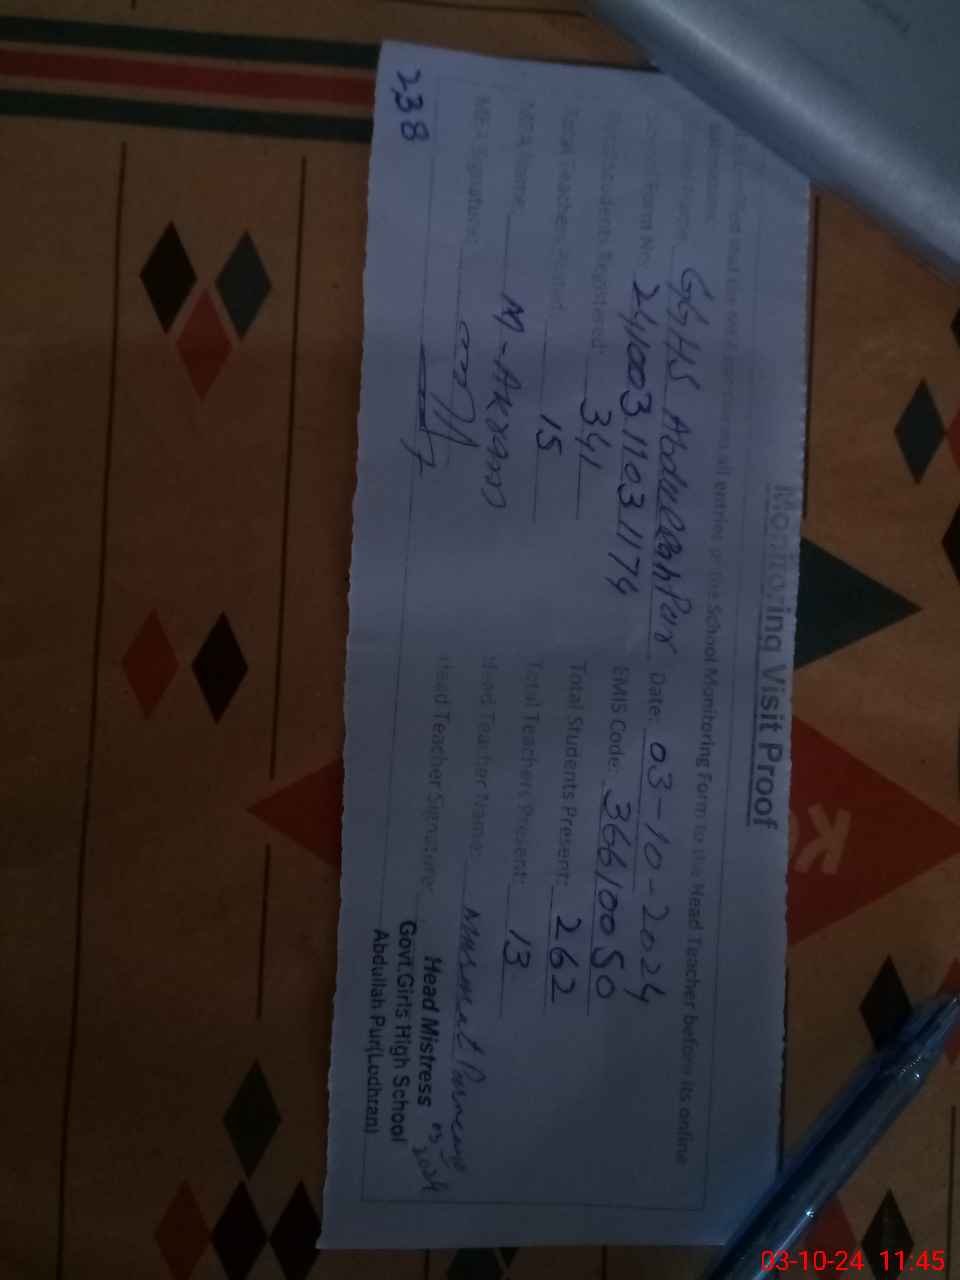 Monitoring Visit Proof
that the all entries of the School Monitoring Form to the Head Teacher before its online
GGHS Abdullah Pur Date: 03-10-2024
Form No. 241003 11031174 EMIS Code: 36610050
Students Registered: 341 Total Students Present: 262
Total Teachers Posted 15 Total Teachers Present: 13
MEA Name: M-Akram Head Teacher Name:
MEA Signature: Head Teacher Signature:
Head Mistress
Govt.Girls High School
Abdullah Pur(Lodhran)
238
03-10-24 11:45